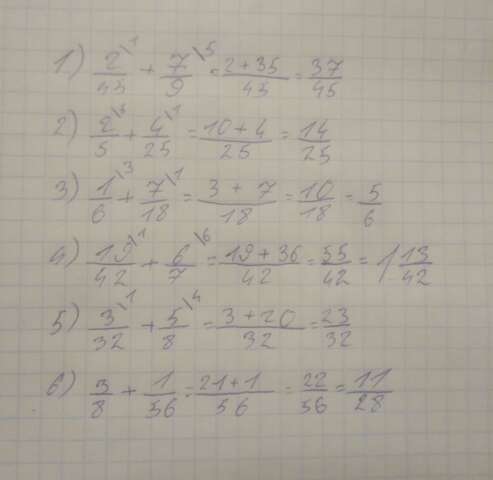 1) 2\1/45 + 7\5/9 = 2+35/45 = 37/45
2) 2\5/5 + 4\1/25 = 10+4/25 = 14/25
3) 1\3/6 + 7\1/18 = 3+7/18 = 10/18 = 5/6
4) 19\1/42 + 6\6/7 = 19+36/42 = 55/42 = 1 13/42
5) 3\1/32 + 5\4/8 = 3+20/32 = 23/32
6) 3/8 + 1/56 = 21+1/56 = 22/56 = 11/28